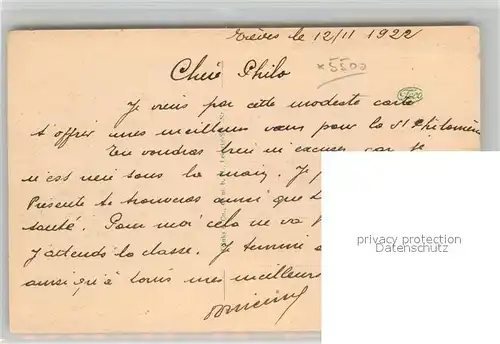 Trèves le 12/11 1922
x 5500
Cher Philo
Je viens par cette modeste carte
t'offrir mes meilleurs vœux pour la St Philomène
Tu voudras bien m'excuser car je
n'est rien sous la main. Je
Présente te trouveras ainsi que
santé. Pour moi cela ne va
J'attends la classe. Je termine
ainsi qu'à tous mes meilleurs
privacy protection
Datenschutz